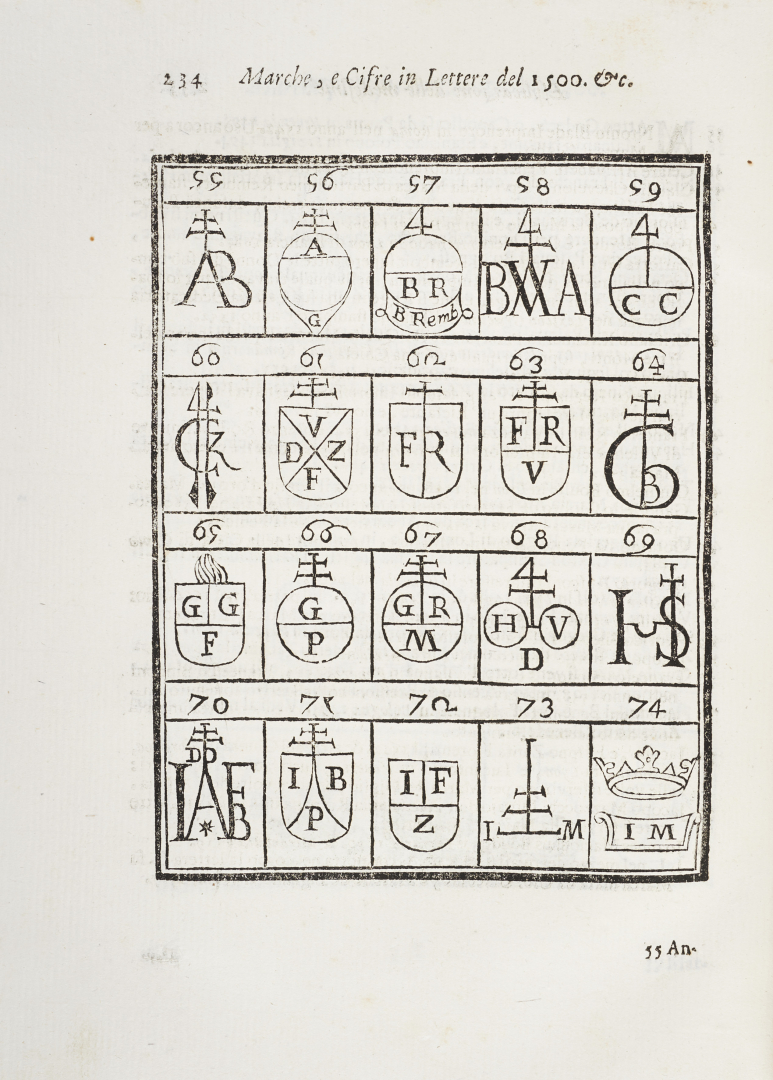 234 Marche, e Cifre in Lettere del 1500. &c.
55 56 57 58 59
AB A G 4 BR B Remb 4 BWA 4 CC
60 61 62 63 64
V D Z F FR FR V GB
65 66 67 68 69
G G F G P G R M 4 H V D HIS
70 71 72 73 74
DD I B P I F Z I M I M
55 An-